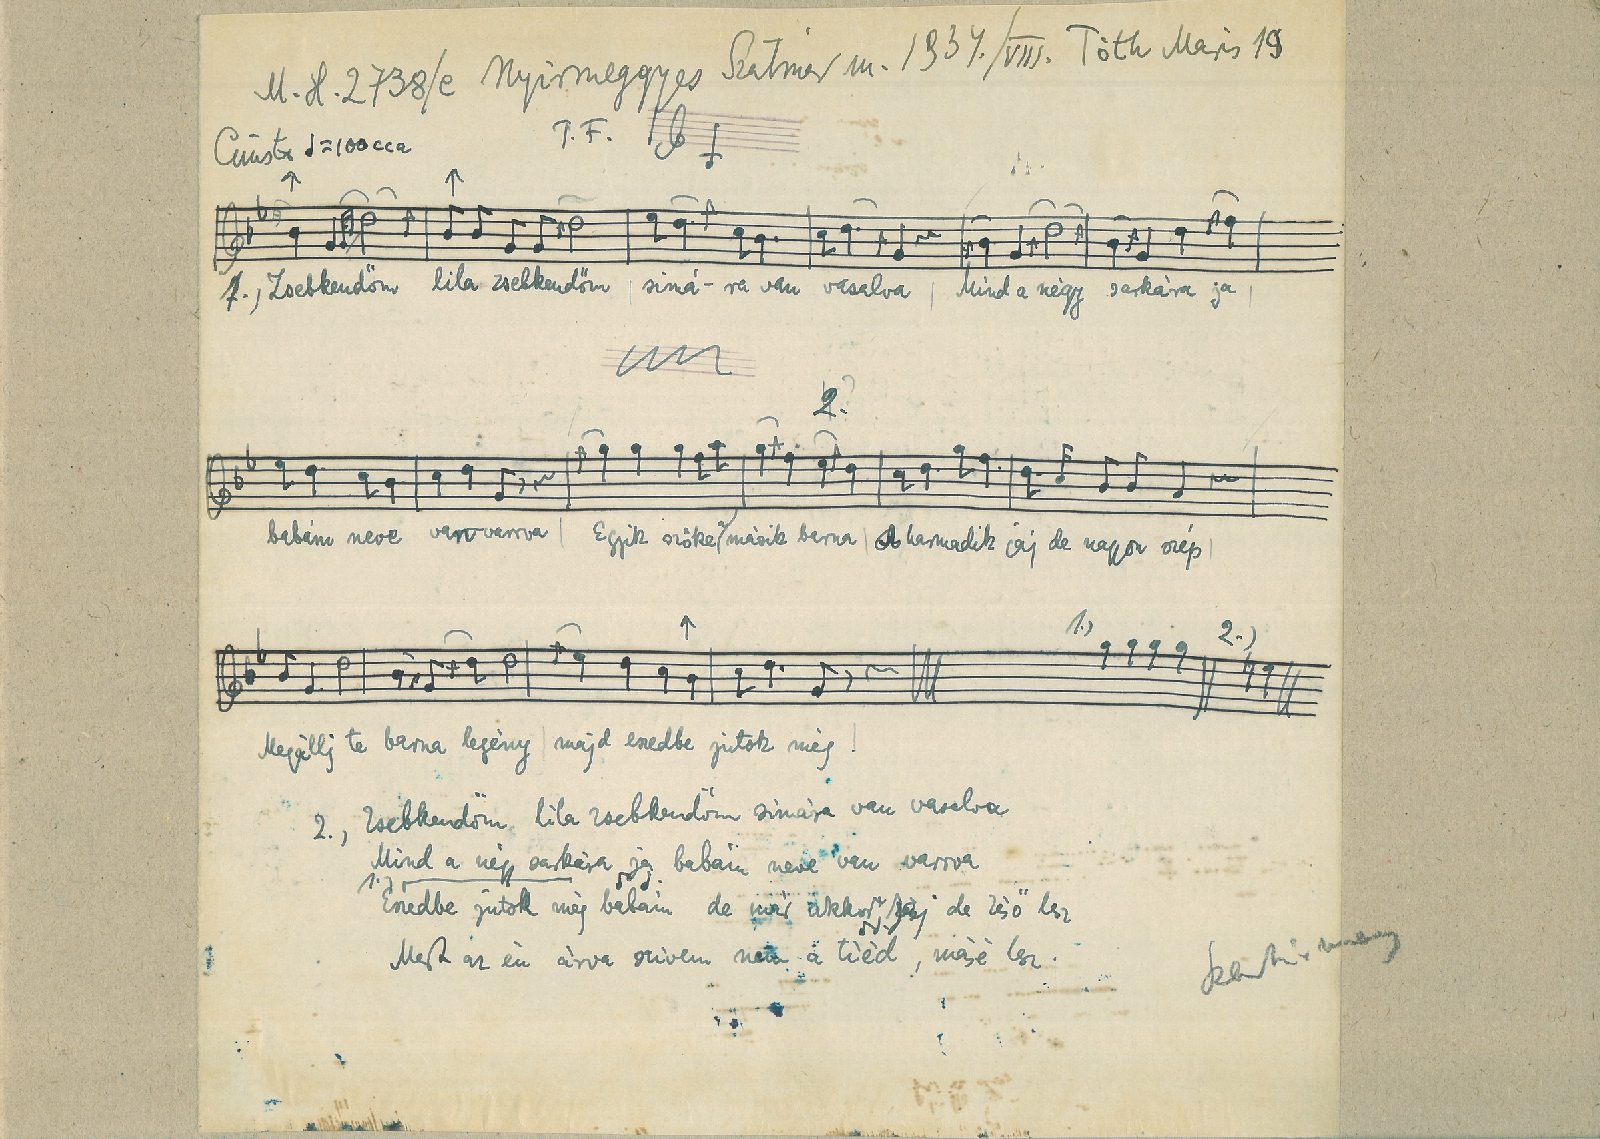 M.H. 2738/e Nyírmeggyes Szatmár m. 1937./VIII. Tóth Maris 19
♩=100 cca T.F.
1., Zsebkendőm lila zsebkendőm | simá-ra van vasalva | Mind a négy sarkára ja |
2.
babám neve van varrva | Egyik szőke, másik barna | A harmadik jáj de nagyon szép |
1.) 2.)
Megállj te barna legény | majd eszedbe jutok még!
2., Zsebkendőm lila zsebkendőm simára van vasalva
Mind a négy sarkára ja babám neve van varrva
1.) Eszedbe jutok még babám de már akkor jáj de késő lesz
Mert az én árva szivem nem a tiéd, másé lesz.